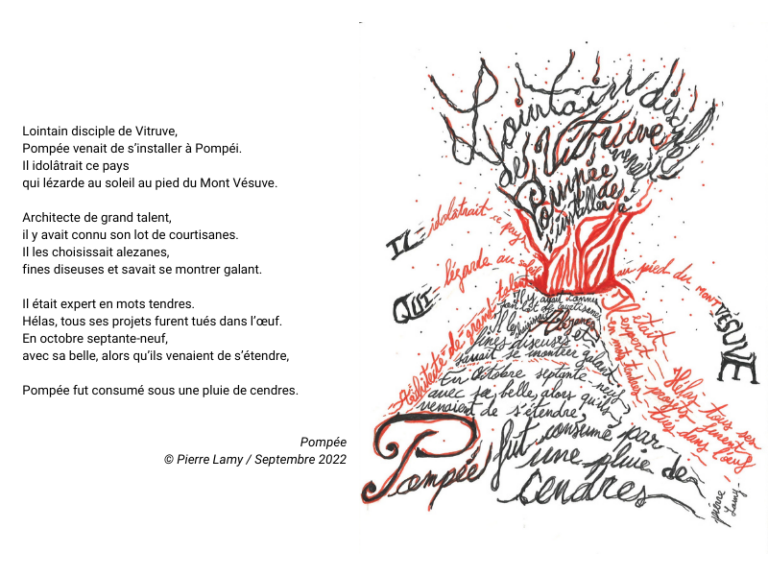 Lointain disciple de Vitruve,
Pompée venait de s’installer à Pompéi.
Il idolâtrait ce pays
qui lézarde au soleil au pied du Mont Vésuve.
Architecte de grand talent,
il y avait connu son lot de courtisanes.
Il les choisissait alezanes,
fines diseuses et savait se montrer galant.
Il était expert en mots tendres.
Hélas, tous ses projets furent tués dans l’œuf.
En octobre septante-neuf,
avec sa belle, alors qu’ils venaient de s’étendre,
Pompée fut consumé sous une pluie de cendres.
Pompée
© Pierre Lamy / Septembre 2022
Lointain di
de Vitruve
venait
Pompée
de
s'installer à
IL idolâtrait ce pays
QUI lézarde au soleil
au pied du Mont VÉSUVE
Architecte de grand talent
Il y avait connu
son lot de courtisanes
Il les choisissait alezanes
fines diseuses et
savait se montrer galant
En octobre septante-neuf
avec sa belle, alors qu'ils
venaient de s'étendre,
Il était
expert
en mots tendres
Hélas tous ses
projets furent
tués dans l'œuf
Pompée fut consumé par
une pluie de
Cendres
pierre
Lamy